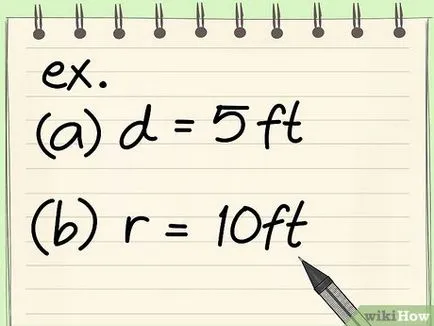 ex.
(a) d = 5ft
(b) r = 10ft
wikiHow